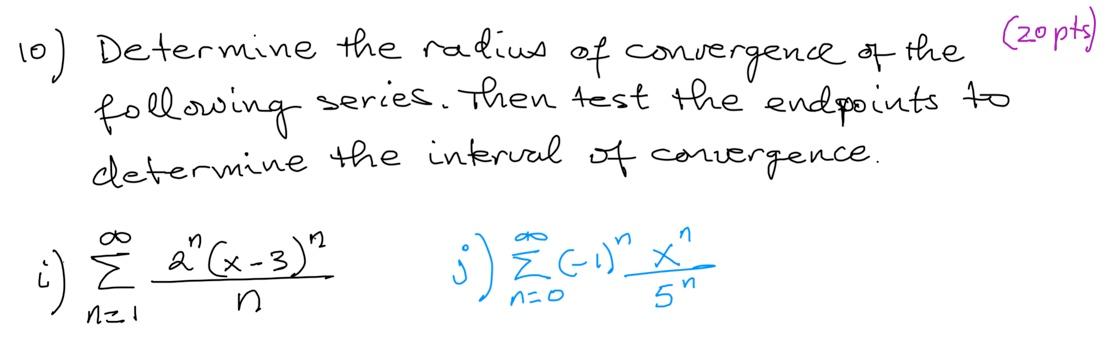 10) Determine the radius of convergence of the (20 pts)
following series. Then test the endpoints to
determine the interval of convergence.
i) ∑_{n=1}^{∞} \frac{2^n (x-3)^n}{n} j) ∑_{n=0}^{∞} (-1)^n \frac{x^n}{5^n}